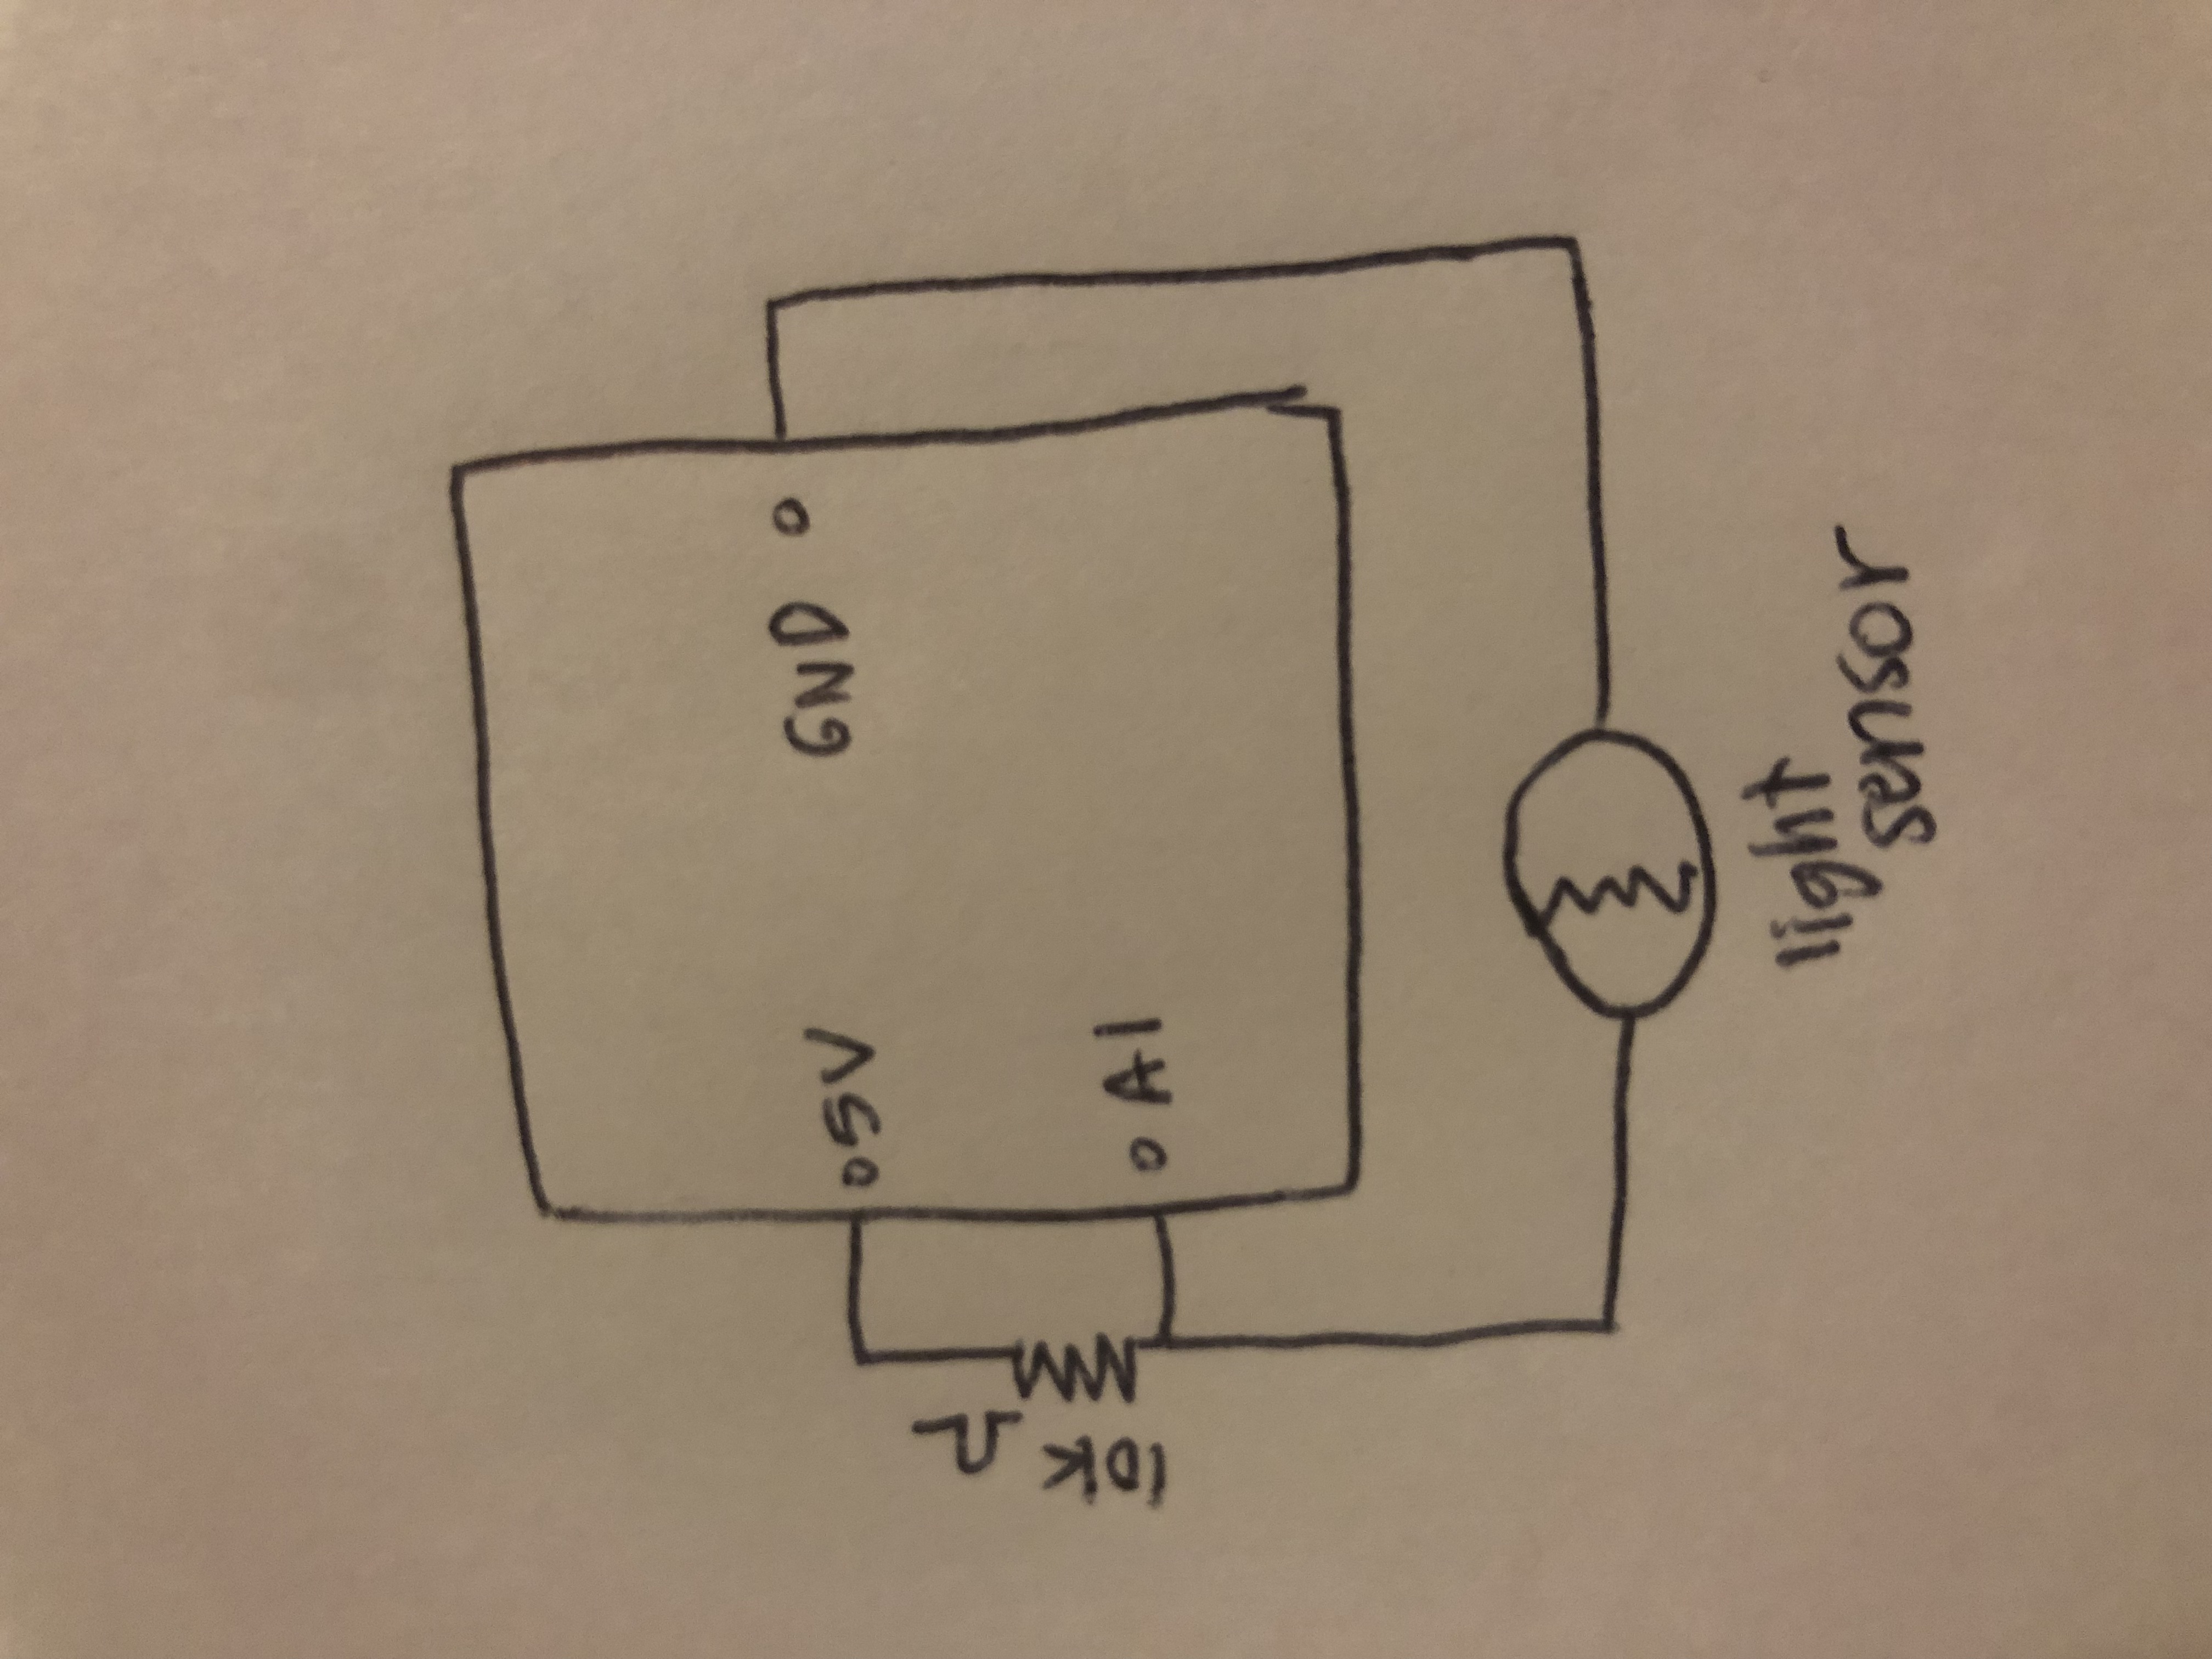 5V
GND
10K Ω
A1
light
sensor